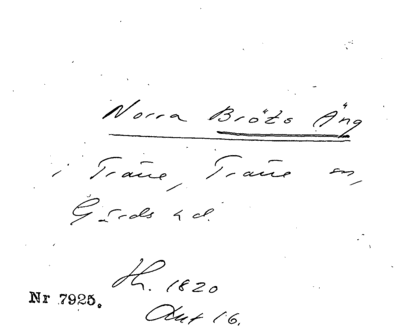 Norra Bröts Äng
i Träne, Träne sn,
Gärds hd.
Hh. 1820
Akt 16.
Nr 7925.